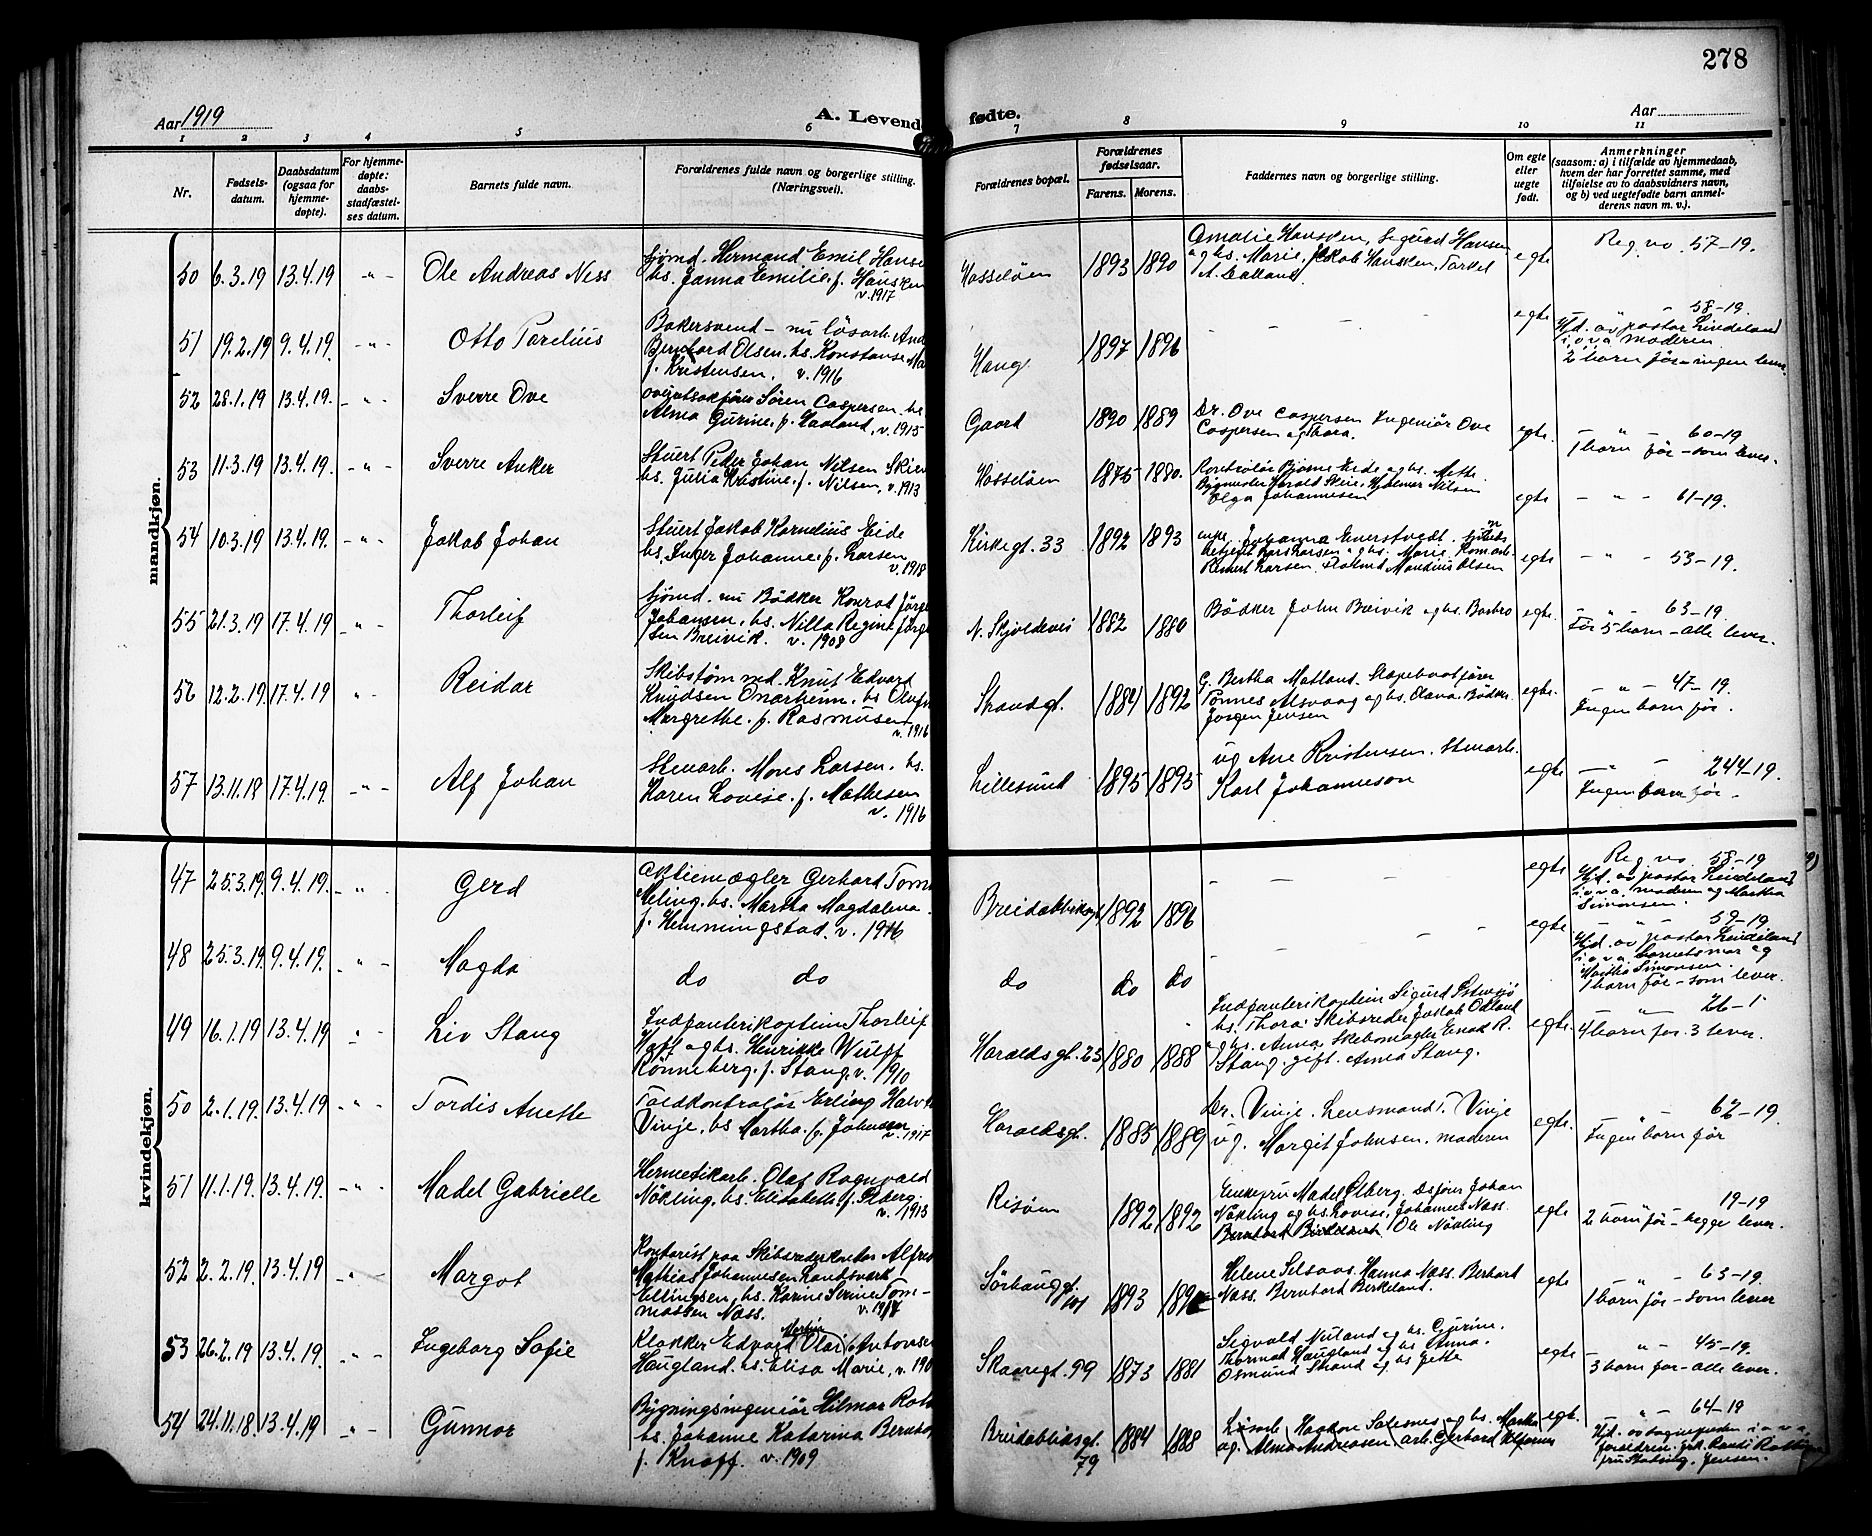 278
Aar 1919
A. Levende fødte.
Aar
1 2 3 4 5 6 7 8 9 10 11
Nr.
Fødsels-
datum.
Daabsdatum
(ogsaa for
hjemme-
døpte).
For hjemme-
døpte:
daabs-
stadfæstel-
ses datum.
Barnets fulde navn.
Forældrenes fulde navn og borgerlige stilling.
(Næringsvei).
Forældrenes bopæl.
Forældrenes
fødselsaar.
Farens. Morens.
Faddernes navn og borgerlige stilling.
Om egte
eller
uegte
født.
Anmerkninger
(saasom: a) i tilfælde av hjemmedaab,
hvem der har forrettet samme, med
tilføielse av to daabsvidners navn,
og b) ved uegtefødte barn anmel-
derens navn m. v.).
mandkjøn.
50 6.3.19 13.4.19 -"- Ole Andreas Ness
Sjömd. Hermand Emil Hanse
hs. Janna Emilie f. Hausken
v. 1917
Hasseløen 1893 1890
Amalie Hausken, Sigurd Hansen
og hs. Marie, Jakob Hausken, Torkel
egte Reg. no. 57-19.
51 19.2.19 9.4.19. -"- Otto Parelius
Bakersvend - nu løsarb. And
Bernhard Olsen. hs. Konstanse Ma
f. Kristensen. v. 1916
Haug 1897 1896
- - - - egte - " - 58-19.
Hjd. av pastor Lindeland
i. o. v. a. moderen
2 barn før - ingen lever.
52 28.1.19 13.4.19. -"- Sverre Ove
Overretssakfører Sören Caspersen. hs
Alma Gurine f. Haaland, v. 1915
Gaard 1890 1889
Dr. Ove Caspersen Ingeniör Ove
Caspersen og Thora.
egte. - " - 60-19
1 barn før - som lever.
53 11.3.19 13.4.19. -"- Sverre Anker
Stuert Peder Johan Nilsen
hs. Julia Kristine f. Nilsen, v. 1913
Hasseløen 1875 1880.
Kontrolör Bjarne Eide og hs. Mette
Bygmester Harald Skeie, Hjalmar Nilsen
Olga Johannesen
egte - " - 61-19.
54 10.3.19 13.4.19. -"- Jakob Johan
Stuert Jakob Kornelius Eide
hs. Inger Johanne f. Larsen
v. 1918
Kirkegt. 33 1892 1893
enke. Johanna
Lars Larsen og hs. Marie.
Larsen. Mandius Olsen
egte - " - 53-19.
55 21.3.19 17.4.19 -"- Thorleif
Sjömd. nu Bödker Konrad Jörge
Johansen, hs. Nilla Regine Jörge
sen Breivik. v. 1908
N. Skjoldevei 1882 1880
Bödker John Breivik og hs. Barbro
egte. - " - 63-19.
Før 5 barn - alle lever.
56 12.2.19 17.4.19 "- Reidar
Skibstømmd. Knut Edvard
Knudsen Onarheim. hs Oluf
Margrethe. f. Rasmusen
v. 1916
Strandgt. 1884 1892
G. Bertha Matland.
Tönnes Alsvaag og hs. Olava. Bödker
Jörgen Jensen
egte. - " - 47-19.
Ingen barn før.
57 13.11.18 17.4.19. -"- Alf Johan
Stenarb. Mons Larsen. hs.
Karen Lovise. f. Mathesen
v. 1916
Lillesund 1895 1895
ug Ane Kristensen. Stenarb.
Karl Johannesen
egte - " - 244-19.
Ingen barn før.
kvindekjøn.
47 25.3.19. 9.4.19. -"- Gerd
Aktiemægler Gerhard Tom
Meling. hs. Martha Magdalena
f. Hemmingstad. v. 1916
Breidablikgt 1892 1896
- - - - egte Reg. no. 58-19
Hjd. av pastor Lindeland
i. o. v. a. moderen og Martha
Simonsen.
48 25.3.19. 9.4.19. "- Magda
do do
do do do
- - - - egte - " - 59-19
Hjd. av pastor Lindeland
i. o. v. a. barnets mor og
Martha Simonsen.
1 barn før - som lever.
49 16.1.19 13.4.19 " Liv Stang
Indfanterikaptein Thorleif
og hs. Henrikke Wulff
Rönneberg. f. Stang. v. 1910
Haraldsgt. 23 1880 1888
Indfanterikaptein Sigurd
hs. Thora. Skibsreder Jakob
og hs. Anna Skibsmægler Enok R.
Stang. gift. Anna Stang.
egte. - " - 26-1
4 barn før 3 lever.
50 2.1.19. 13.4.19 -"- Tordis Anette
Toldkontrolör Erling Halv
Vinje. hs Martha. f. Johnsen
v. 1917
Haraldsgt. 1885 1889
Dr. Vinje. Lensmand T. Vinje
ug. Margit Johnsen. moderen
egte. - " - 62-19
Ingen barn før
51 11.1.19. 13.4.19. -"- Madel Gabrielle
Hermetikarb. Olaf Ragnvald
Nökling. hs. Elisabeth f. Elberg
v. 1913
Risøen 1892 1892
Enkefru Madel Elberg. Johan
Nökling og hs. Lovise. Johannes Næss.
Ole Nökling
egte - " - 19-19
2 barn før - begge lever.
52 2.2.19. 13.4.19 -"- Margot
Kontorist paa Skibsrederkontor Alfred
Mathias Johannesen
Ellingsen, hs. Karine Serine Tom-
massen Næss. v. 1917
Sörhauggt. 101 1893
Helene Helene Selsaas. Hanna Næss. Berhart
Næss. Bernhard Birkeland.
egte - " - 63-19.
1 barn før - som lever
53 26.2.19 13.4.19. -"- Ingeborg Sofie
Klokker Edvard Martin Olai Antonsen
Haugland. hs. Elisa Marie, v. 190
Skaaregt. 99 1873 1881
Sigvald Nuland og hs. Gurine.
Thormod Haugland og hs Anna.
Osmund Strand og hs Jette
egte - " - 45-19.
3 barn før - alle lever.
54 24.11.18. 13.4.19 -"- Gunnar
Bygningsingeniör Hilmar
hs. Johanne Katarina Bernho
f. Knoff. v. 1909
Breidablikgt. 79 1884 1888
Løsarb. Haakon og hs. Martha
og. Alma Andreasen. arb. Gerhard
egte. - " - 64-19
Hjd. av sognepresten i. o. v. a.
forældrene.
Jensen.